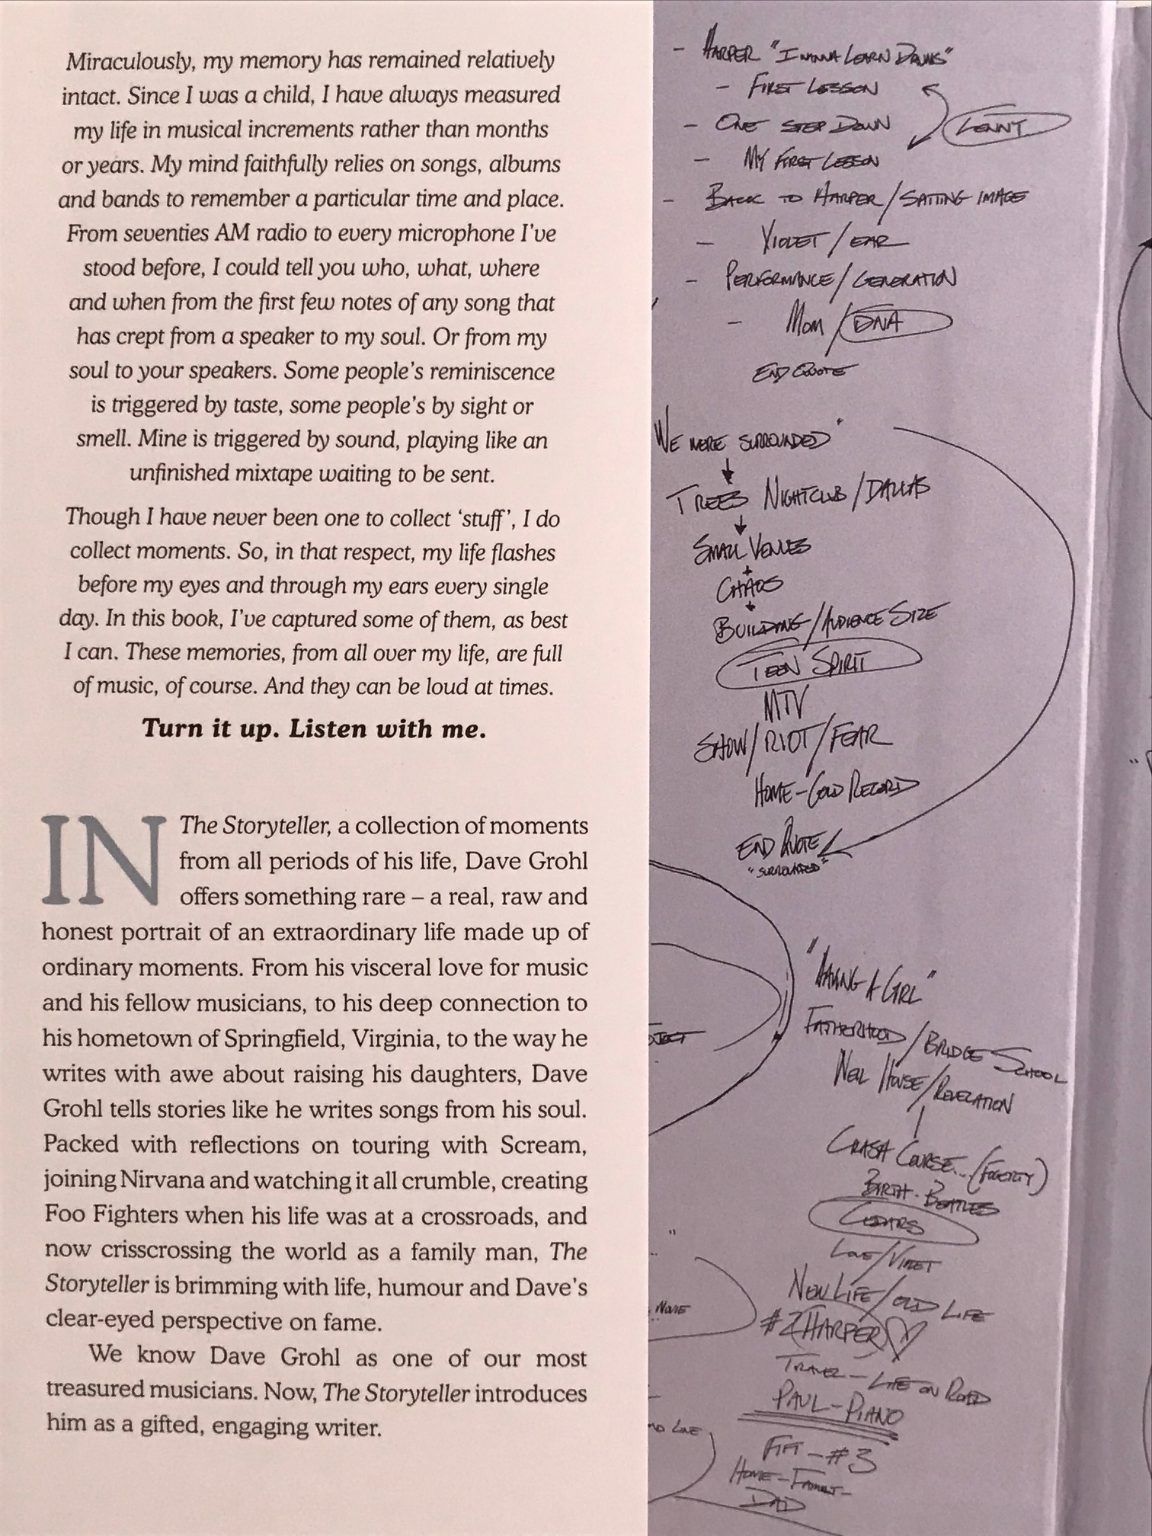 Miraculously, my memory has remained relatively
intact. Since I was a child, I have always measured
my life in musical increments rather than months
or years. My mind faithfully relies on songs, albums
and bands to remember a particular time and place.
From seventies AM radio to every microphone I've
stood before, I could tell you who, what, where
and when from the first few notes of any song that
has crept from a speaker to my soul. Or from my
soul to your speakers. Some people's reminiscence
is triggered by taste, some people's by sight or
smell. Mine is triggered by sound, playing like an
unfinished mixtape waiting to be sent.
Though I have never been one to collect 'stuff', I do
collect moments. So, in that respect, my life flashes
before my eyes and through my ears every single
day. In this book, I've captured some of them, as best
I can. These memories, from all over my life, are full
of music, of course. And they can be loud at times.
Turn it up. Listen with me.
IN The Storyteller, a collection of moments
from all periods of his life, Dave Grohl
offers something rare – a real, raw and
honest portrait of an extraordinary life made up of
ordinary moments. From his visceral love for music
and his fellow musicians, to his deep connection to
his hometown of Springfield, Virginia, to the way he
writes with awe about raising his daughters, Dave
Grohl tells stories like he writes songs from his soul.
Packed with reflections on touring with Scream,
joining Nirvana and watching it all crumble, creating
Foo Fighters when his life was at a crossroads, and
now crisscrossing the world as a family man, The
Storyteller is brimming with life, humour and Dave's
clear-eyed perspective on fame.
We know Dave Grohl as one of our most
treasured musicians. Now, The Storyteller introduces
him as a gifted, engaging writer.
- HARPER "I WANNA LEARN DRUMS"
- FIRST LESSON
- ONE STEP DOWN
LENNY
- MY FIRST LESSON
- BACK TO HARPER/SITTING IMAGE
- VIOLET/EAR
- PERFORMANCE/GENERATION
- MOM/DNA
END QUOTE
WE WERE SURROUNDED"
TREES NIGHTCLUB/DALLAS
SMALL VENUES
+
CHAOS
BUILDING/AUDIENCE SIZE
TEEN SPIRIT
MTV
SHOW/RIOT/FEAR
HOME-GOLD RECORD
END QUOTE
"SURROUNDED"
"HAVING A GIRL"
FATHERHOOD/BRIDGE SCHOOL
NEIL HOUSE/REVELATION
CRASH COURSE...
BIRTH-BEATLES
CEDARS
LOVE/VIOLET
NEW LIFE/OLD LIFE
#2 HARPER
TRAVEL-LIFE ON ROAD
PAUL-PIANO
#3
HOME-FAMILY-
DAD